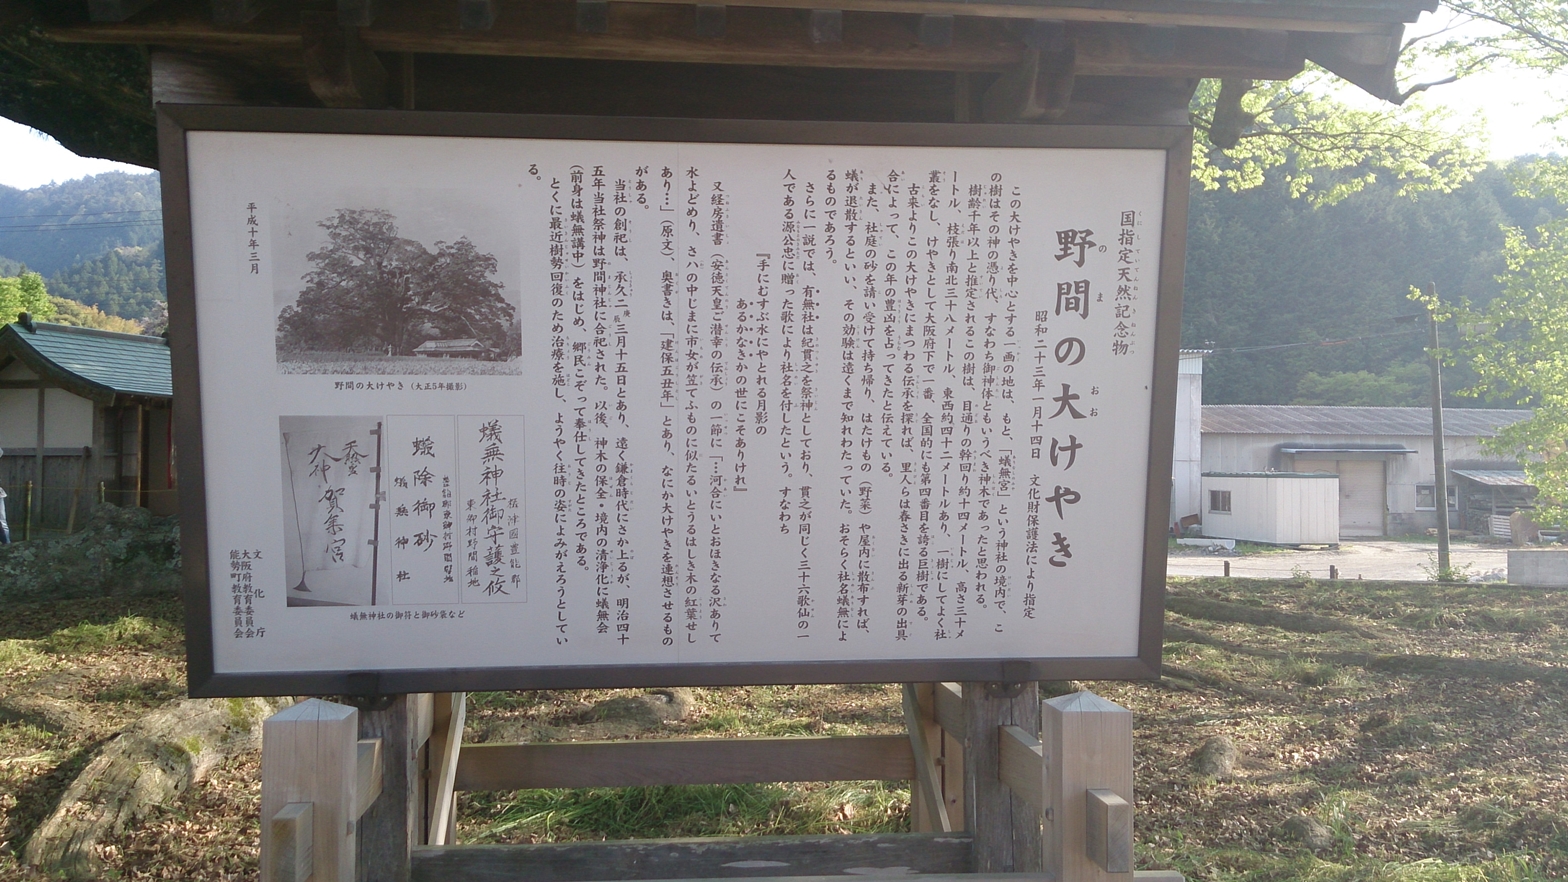 国指定天然記念物
野間の大けやき
昭和二十三年一月十四日 文化財保護法により指定
この大けやきを中心とする一画の地は、もと、「蟻無宮」という神社の境内で、こ
の樹はその神の憑り代、すなわち御神体ともいうべき神木であったと思われる。
樹齢千年以上と推定されるこの樹は、目通りの幹回り約十四メートル、高さ三十メ
ートル、枝張り南北三十八メートル、東西約四十二メートルあり、一樹にしてよく社
叢をなし、けやきとして大阪府下で一番、全国的にも第四番目を誇る巨樹である。
古来より、この大けやきにまつわる伝承を探れば、里人らは春、きに出る新芽の出具
合によって、この年の豊凶を占ってきたと伝えている。
また、社庭の砂を請い受けて持ち帰り、はたけもの(野菜)や屋内に散布すれば、
蟻が退散するといい、その効験は遠くまで知れわたっていた。おそらく、社名蟻無によ
るものであろう。
さらに一説では、有無社は紀貫之を祭神としており、貫之が同じく三十六歌仙の一
人である源公忠に贈った歌により、社名を付したという。すなわち
『手にむすぶ水にやどれる月影の
あるかなきかの世にこそありけれ』
又、経房遺書(安徳天皇ご潜幸の伝承)の一節に「…河合にいとほきなる沢ありて
水よどめり、さハの中じまに市女が笠てふものに似たるいとうるはしき木の紅葉せし
あり…」(原文)、奥書きは、「建保五丑年」とあり、なにか大けやきを連想させるもの
がある。
当社の創祀は、承久二年三月十五日とあり、遠く鎌倉時代にさか上るが、明治四十
五年当社祭神は野間神社に合祀された。以後、神木の保全・境内の清浄化に蟻無会
(前身は蟻無講中)をはじめ、郷民こぞって奉仕してきたところである。
とくに最近樹勢回復のため治療を施し、ようやく往時の姿によみがえろうとしてい
る。
野間の大けやき(大正5年撮影)
蟻無神社御守護之砂
蟻除御砂
蟻無神社
蟻無神社の御符と御砂袋など
平成十一年三月
文化庁
大阪府教育委員会
能勢町教育委員会